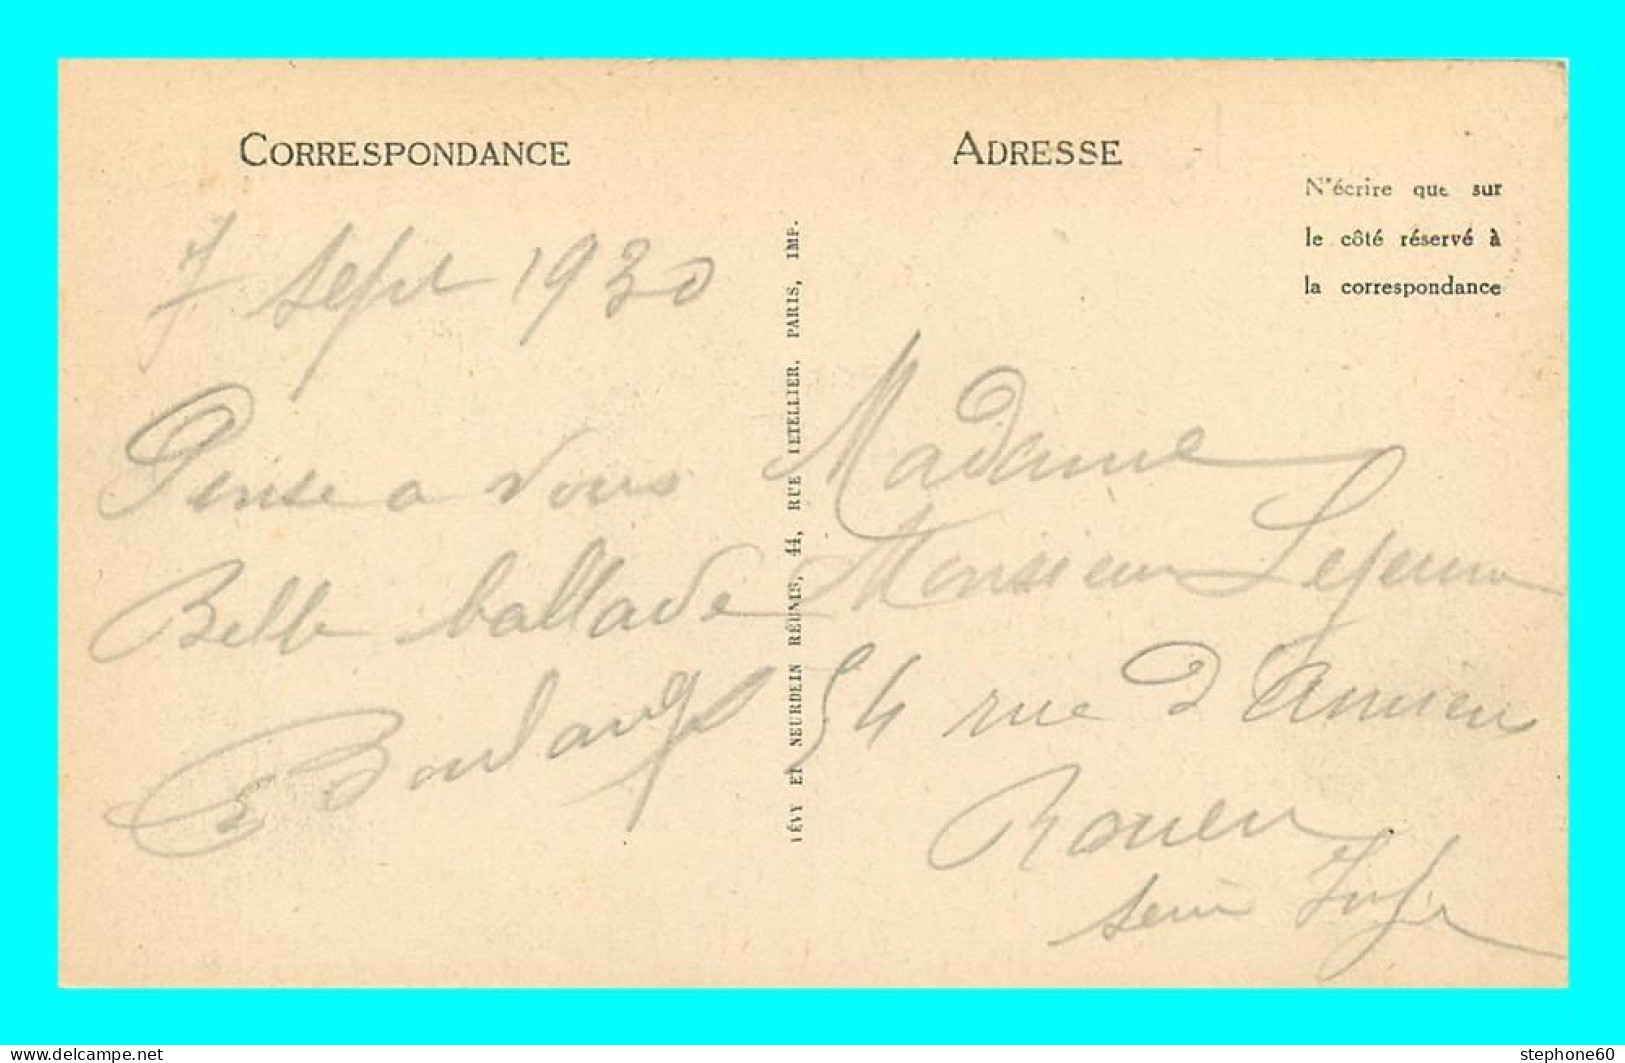 CORRESPONDANCE
7 Sept 1930
Pense a vous
Belle ballade
LÉVY ET NEURDEIN RÉUNIS, 44, RUE LETELLIER, PARIS, IMP.
ADRESSE
N'écrire que sur
le côté réservé à
la correspondance
Madame
Monsieur Lejeune
54 rue d'Amiens
Rouen
Seine Infre
www.delcampe.net
stephone60